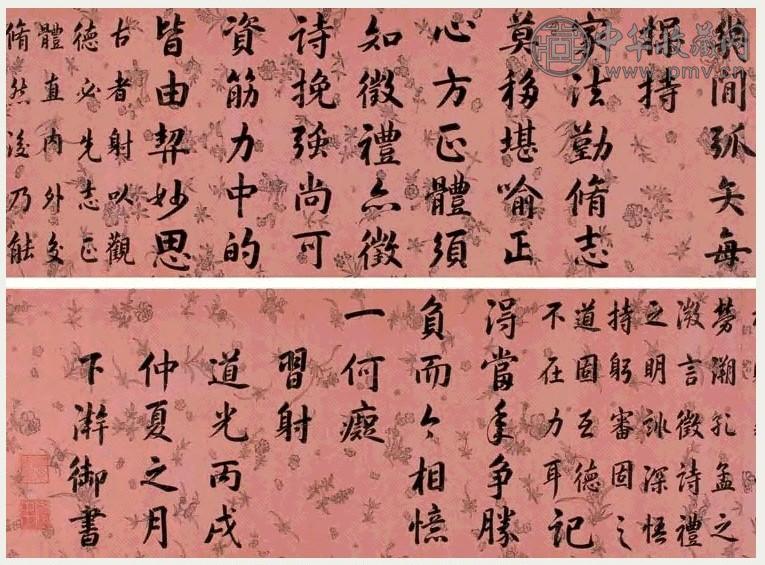 中华收藏网
www.pmv.cn
間弧矢每
握持
家法勤脩志
莫移堪喻正
心方正體須
知徵禮亦徵
詩挽強尚可
資筋力中的
皆由契妙思
古者射以觀
德必先志正
體直內外交
脩然後乃能
勞溯孔孟之
微言徵詩禮
之明訓深悟
持躬審固之
道固在德
不在力耳
記
得當年爭勝
負而今相憶
一何癡
習射
道光丙戌
仲夏之月
下澣御書